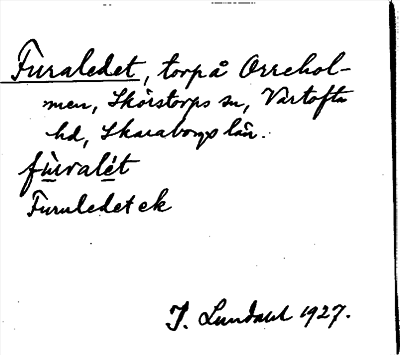 Furaledet, torp å Orrehol-
men, Skörstorps sn, Vartofta
hd, Skaraborgs län.
fùvralét
Furuledet ek
J. Lundahl 1927.